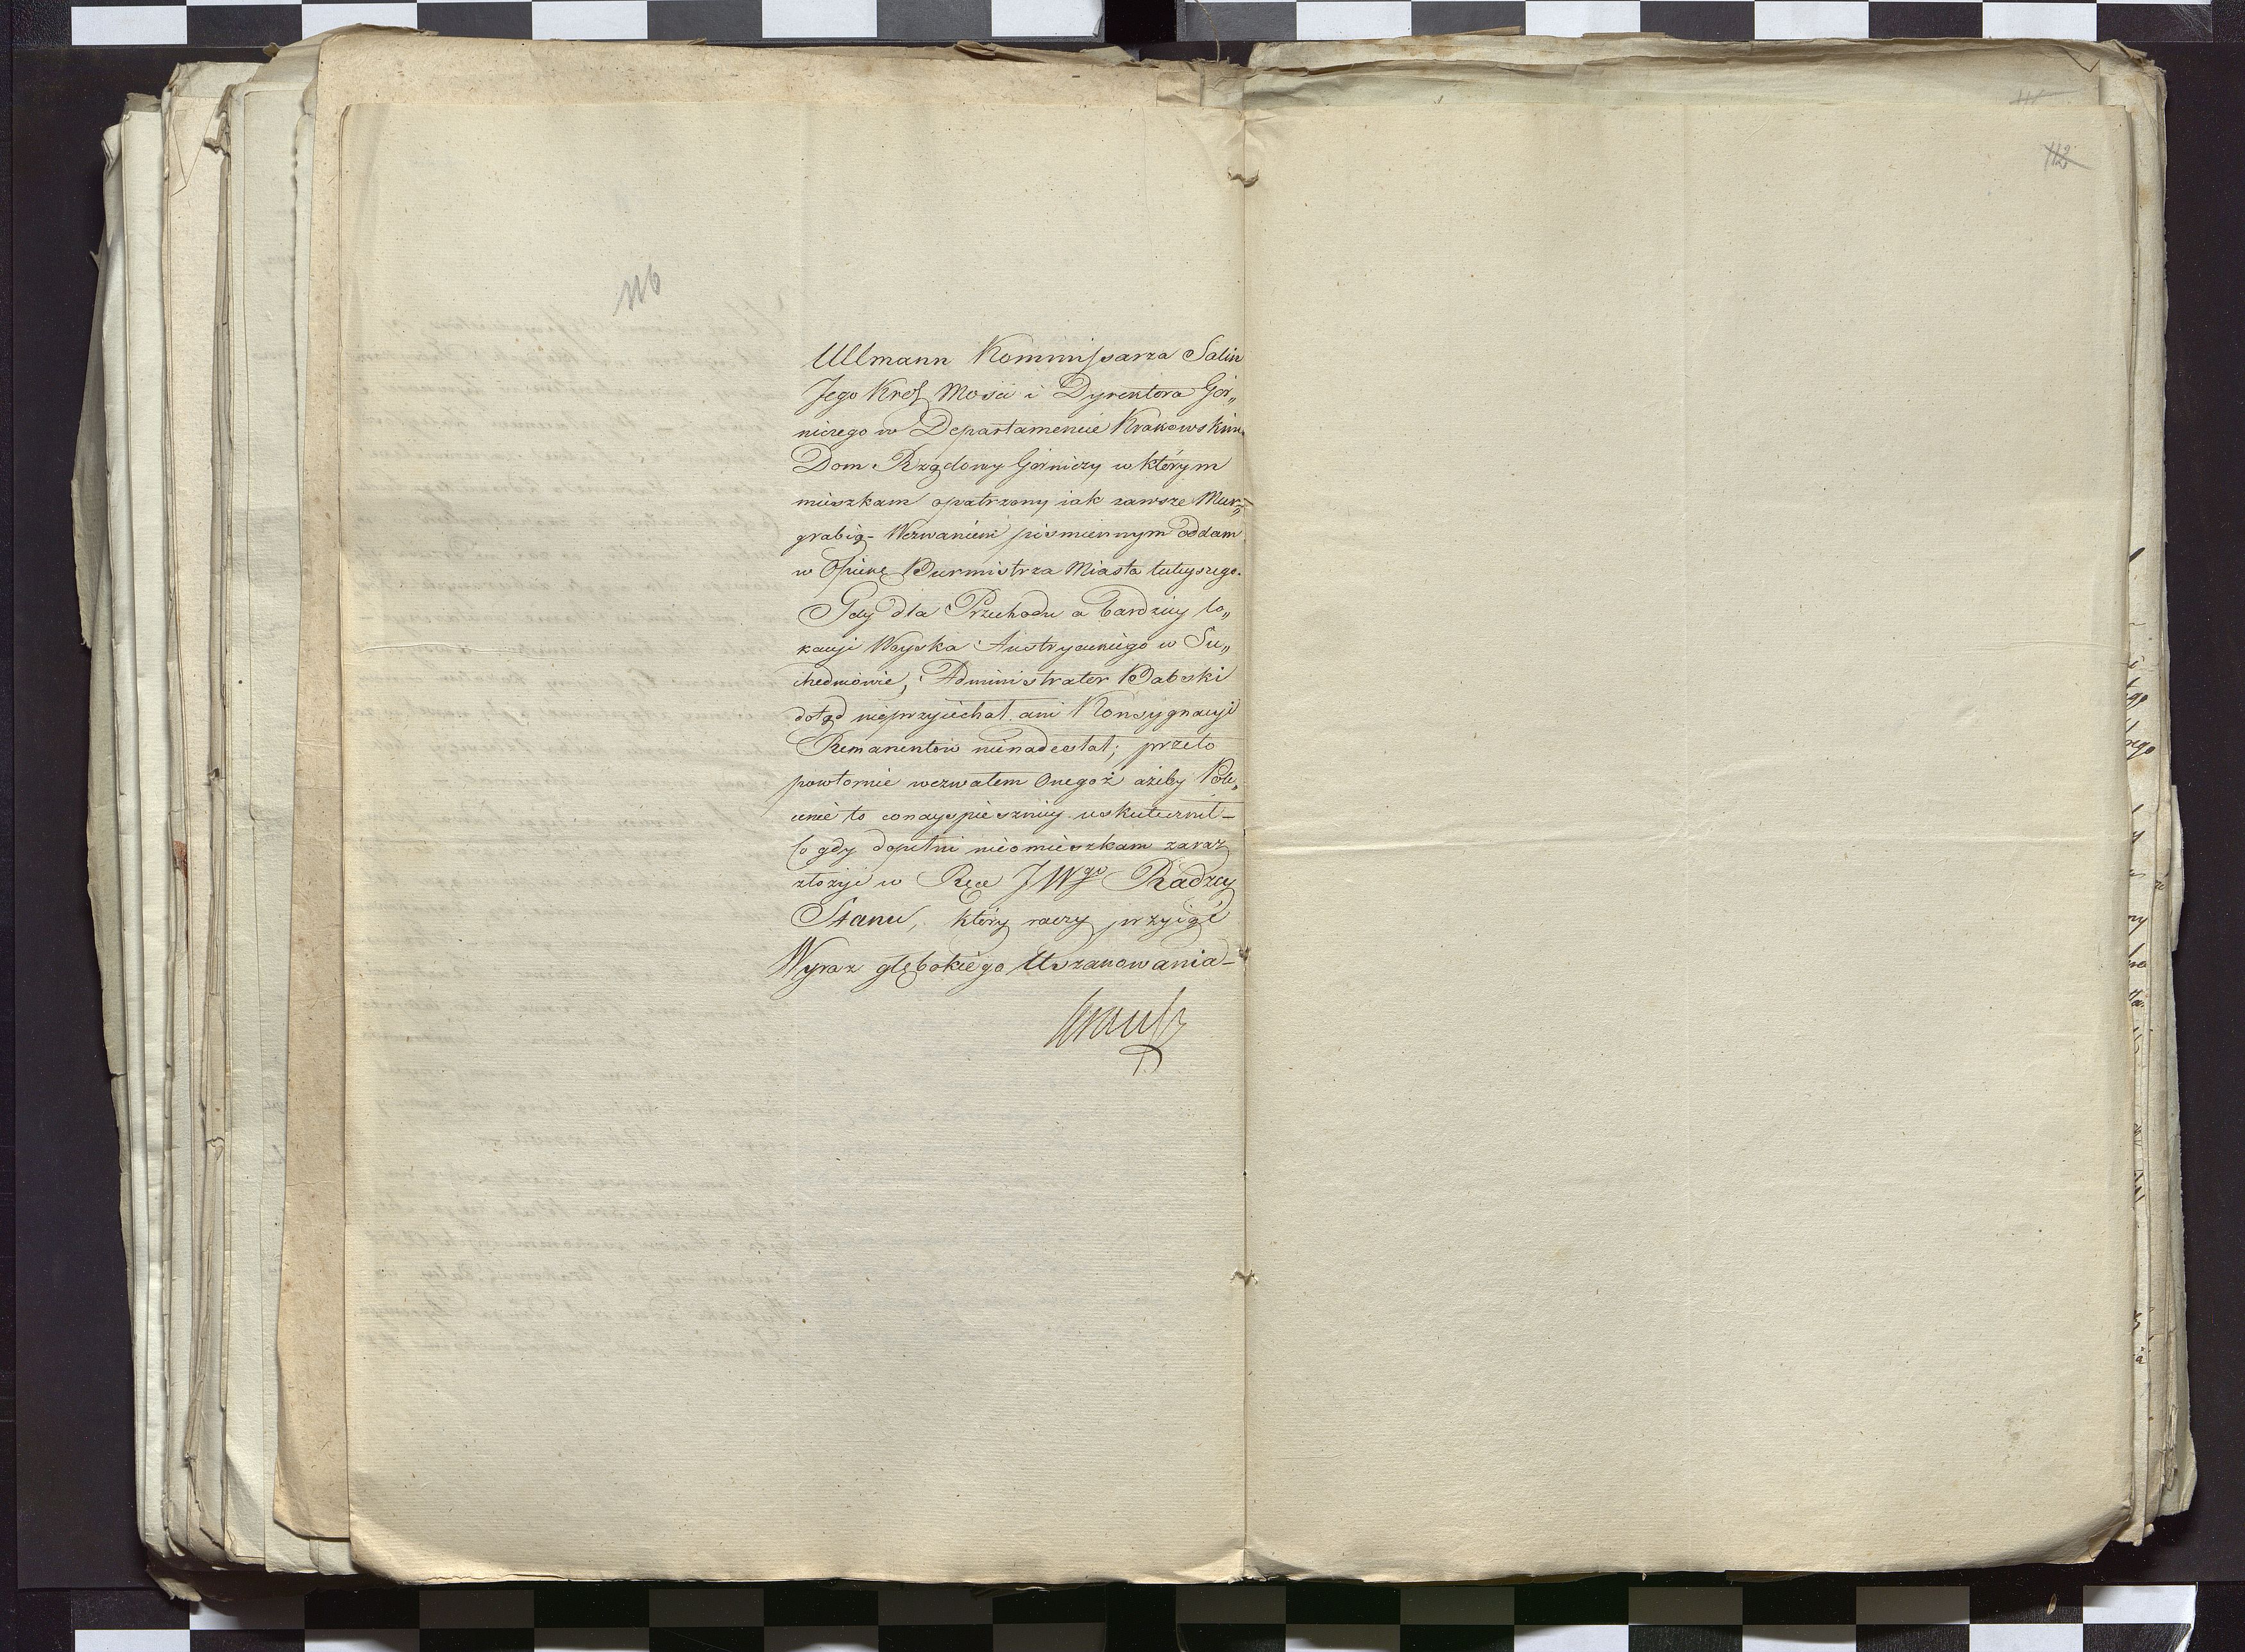 116
Ullmann Kommissarza Salin
Jego Krol Mości i Dyrektora Gór„
niczego w Departamencie Krakowskim
Dom Rządowy Górniczy w którym
mieszkam opatrzony iak zawsze Mur„
grabią – Wezwaniem piśmiennym oddam
w Opiekę Burmistrza Miasta tuteyszego.
Gdy dla Przechodu a bardziey lo„
kacyi Woyska Austryackiego w Su„
chedniowie, Administrator Babski
dotąd nieprzyiechał ani Konsygnacyi
Remanentów nienadesłał; przeto
powtornie wezwałem Onegoż ażeby Pole„
cenie to conayspieszniey uskutecznił –
co gdy dopełni nieomieszkam zaraz
złożyć w Ręce JWgo Radzcy
Stanu, który raczy przyiąć
Wyraz głębokiego Uszanowania –
112